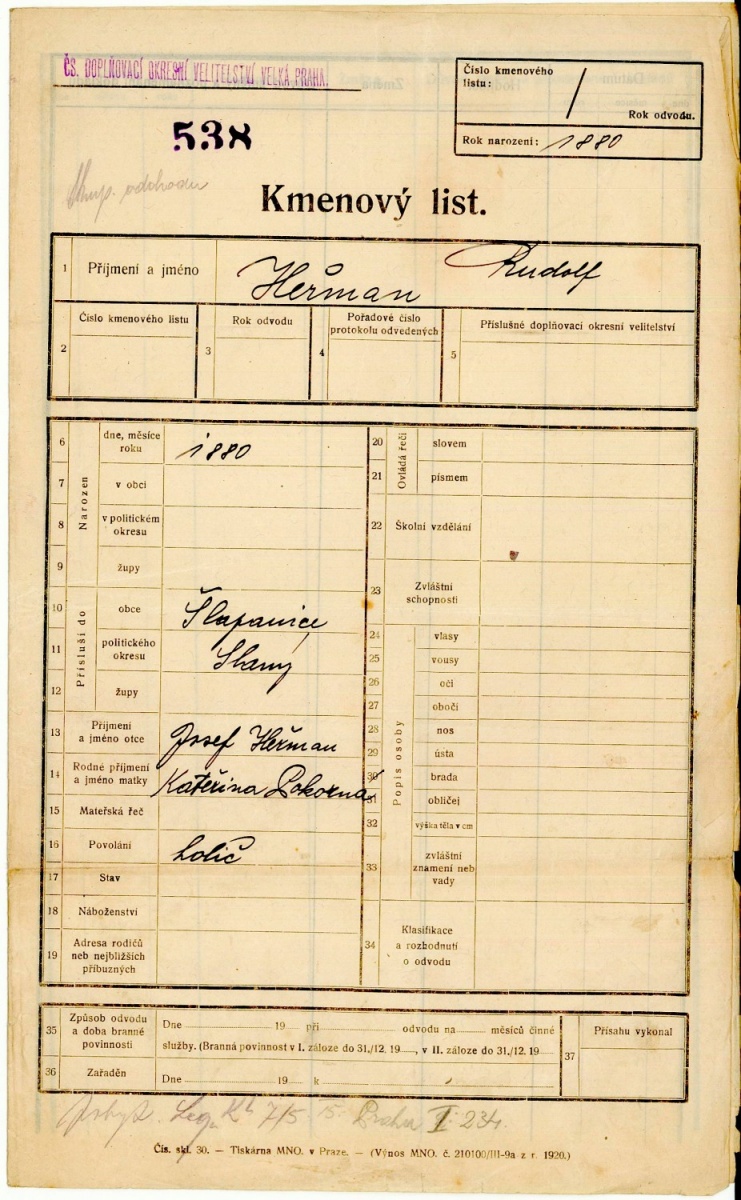 ČS. DOPLŇOVACÍ OKRESNÍ VELITELSTVÍ VELKÁ PRAHA.
Číslo kmenového
listu:
/
Rok odvodu.
Rok narození: 1880
538
odchodu
Kmenový list.
1 Příjmení a jméno Heřman Rudolf
2 Číslo kmenového listu
3 Rok odvodu
4 Pořadové číslo
protokolu odvedených
5 Příslušné doplňovací okresní velitelství
Narozen
6 dne, měsíce
roku 1880
7 v obci
8 v politickém
okresu
9 župy
Přísluší do
10 obce Šlapanice
11 politického
okresu Slaný
12 župy
13 Příjmení
a jméno otce Josef Heřman
14 Rodné příjmení
a jméno matky Kateřina Pokorná
15 Mateřská řeč
16 Povolání holič
17 Stav
18 Náboženství
19 Adresa rodičů
neb nejbližších
příbuzných
Ovládá řeči
20 slovem
21 písmem
22 Školní vzdělání
23 Zvláštní
schopnosti
Popis osoby
24 vlasy
25 vousy
26 oči
27 obočí
28 nos
29 ústa
30 brada
31 obličej
32 výška těla v cm
33 zvláštní
znamení neb
vady
34 Klasifikace
a rozhodnutí
o odvodu
35 Způsob odvodu
a doba branné
povinnosti
Dne 19 při odvodu na měsíců činné
služby. (Branná povinnost v I. záloze do 31./12. 19, v II. záloze do 31./12. 19
36 Zařaděn
Dne 19 k
37 Přísahu vykonal
Leg. 7/5 15. Praha II. 234
Čís. skl. 30. — Tiskárna MNO. v Praze. — (Výnos MNO. č. 210100/III-9a z r. 1920.)